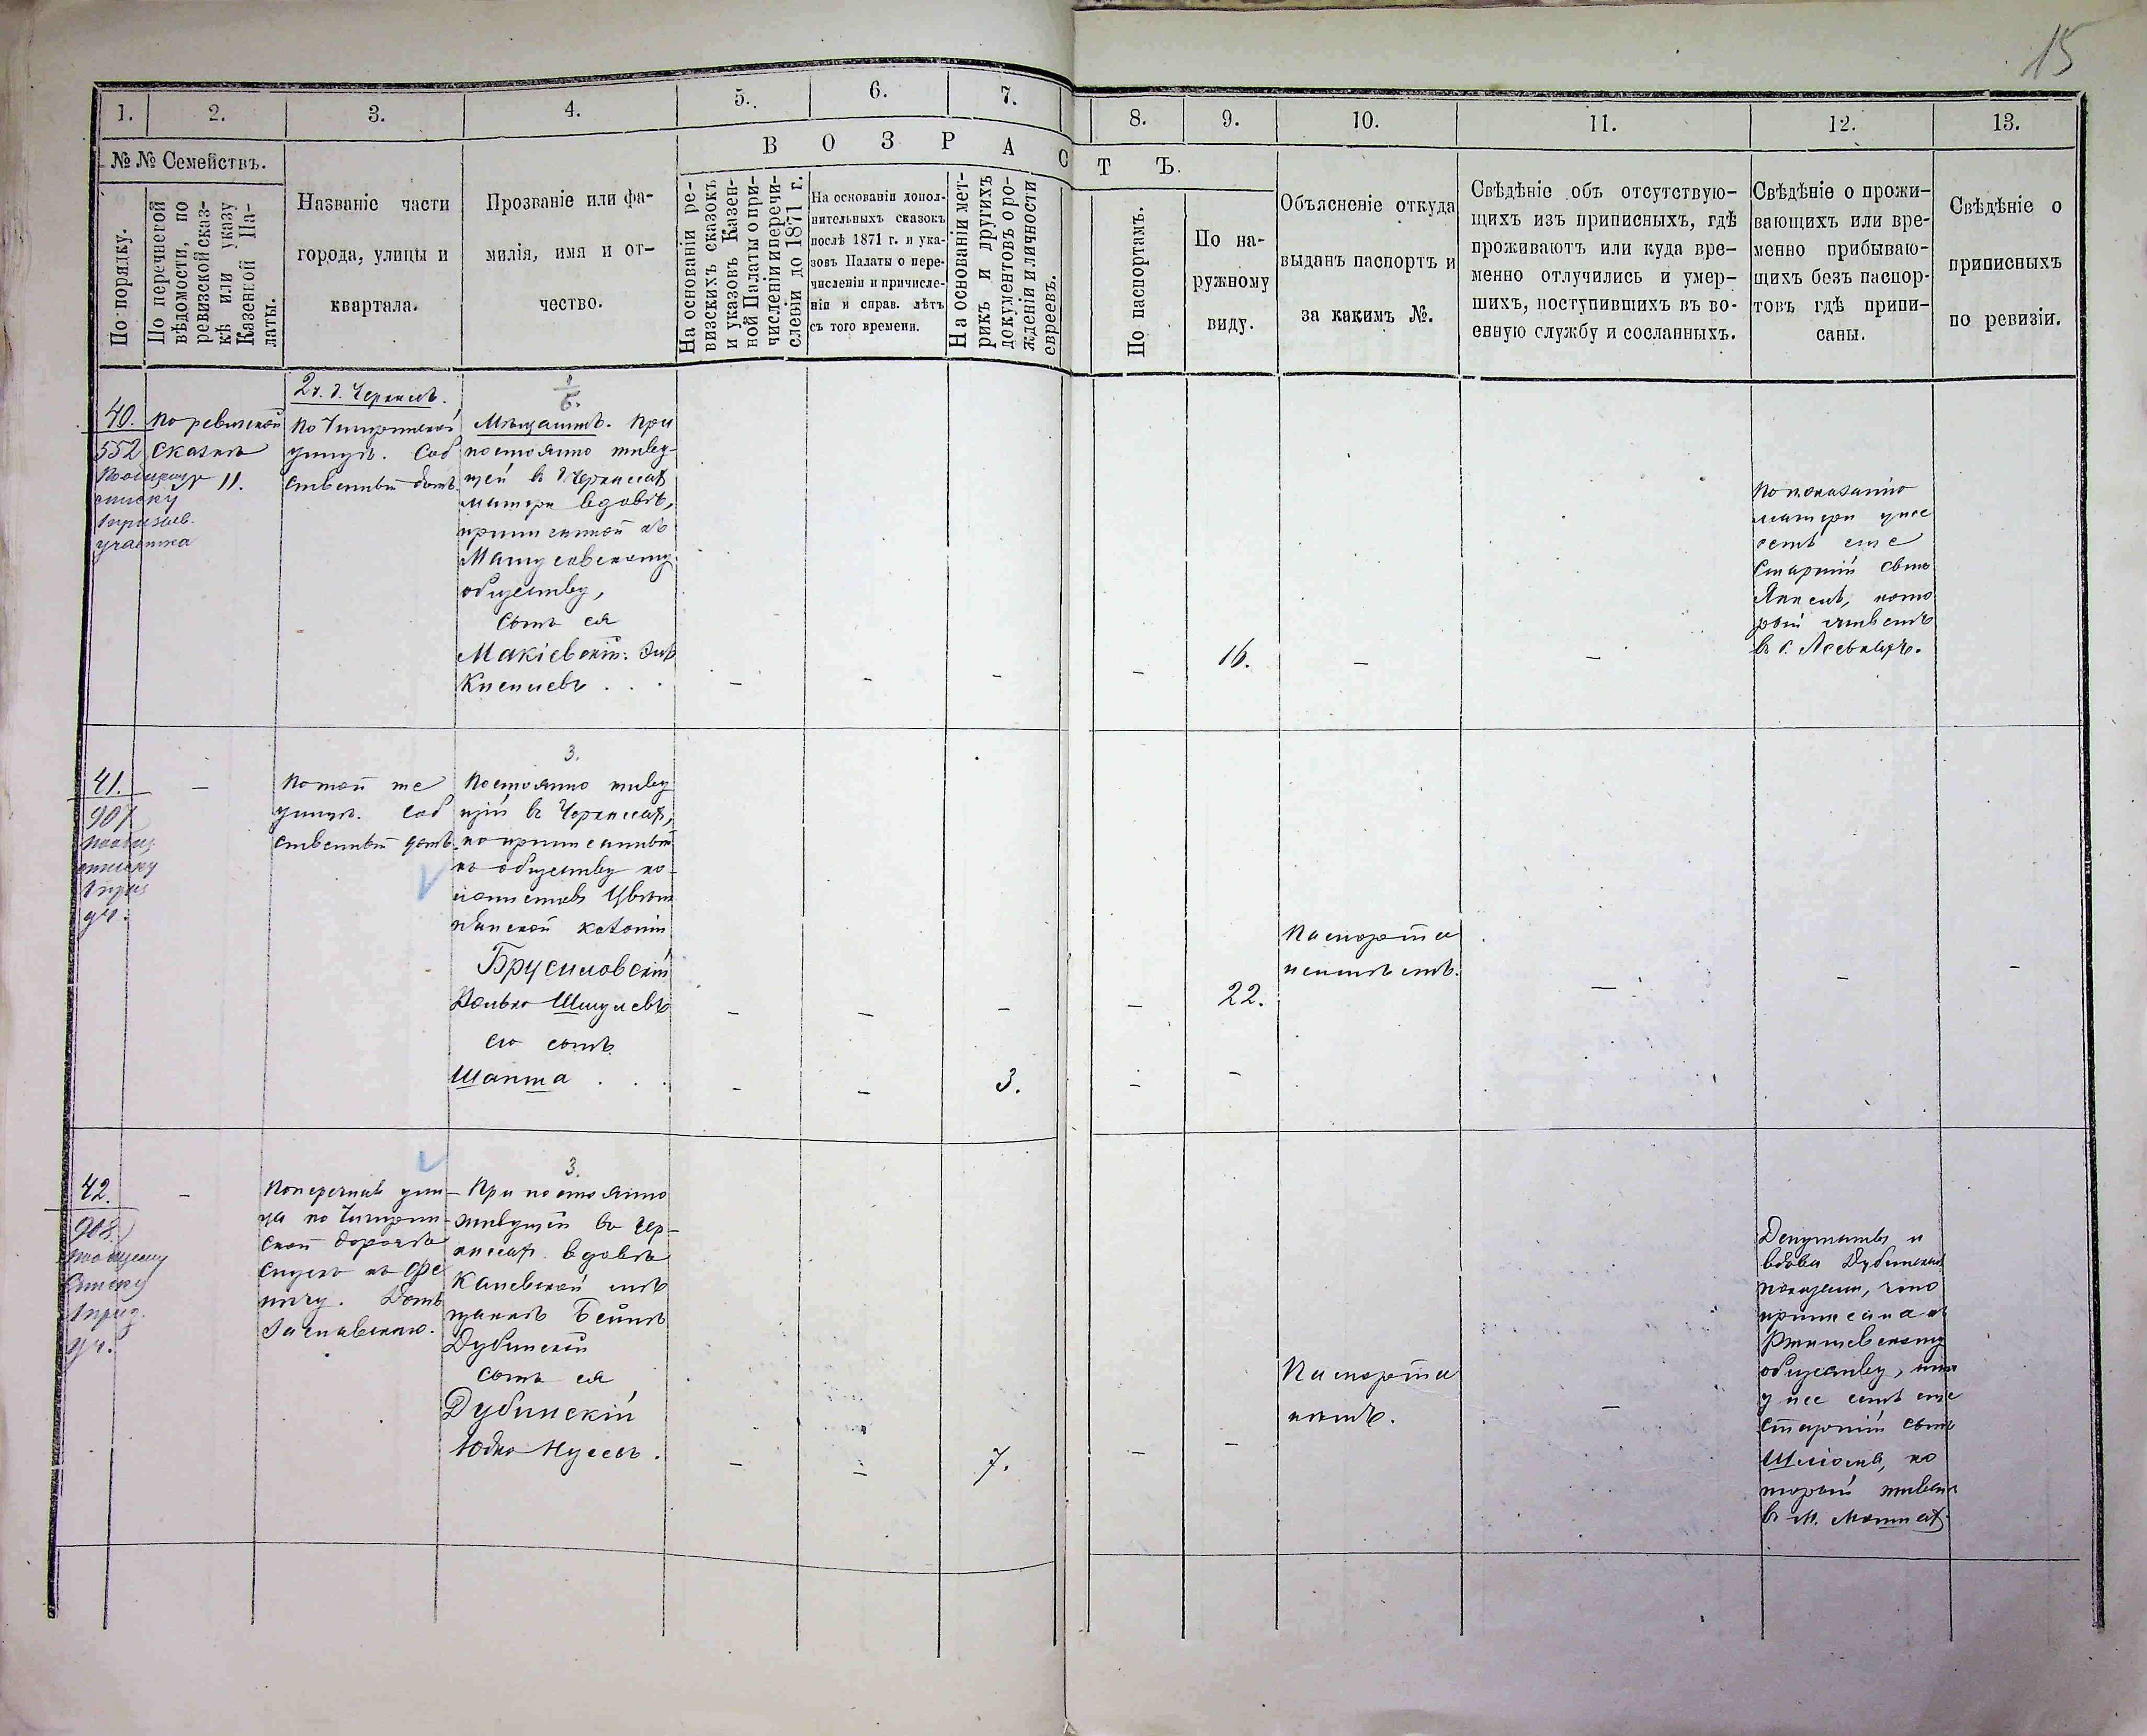 15
1.
2.
3.
4.
5.
6.
7.
8.
9.
10.
11.
12.
13.
№ № Семействъ.
По порядку.
По перечневой
вѣдомости, по
ревизской сказ-
кѣ или указу
Казенной Па-
латы.
Названіе части
города, улицы и
квартала.
Прозваніе или фа-
милія, имя и от-
чество.
В О З Р А С Т Ъ.
На основаніи ре-
визскихъ сказокъ
и указовъ Казен-
ной Палаты о при-
численіи и перечи-
сленіи до 1871 г.
На основаніи допол-
нительныхъ сказокъ
послѣ 1871 г. и ука-
зовъ Палаты о пере-
численіи и причисле-
ніи и справ. лѣтъ
съ того времени.
На основаніи мет-
рикъ и другихъ
документовъ о ро-
жденіи и личности
евреевъ.
По паспортамъ.
По на-
ружному
виду.
Объясненіе откуда
выданъ паспортъ и
за какимъ №.
Свѣдѣніе объ отсутствую-
щихъ изъ приписныхъ, гдѣ
проживаютъ или куда вре-
менно отлучились и умер-
шихъ, поступившихъ въ во-
енную службу и сосланныхъ.
Свѣдѣніе о прожи-
вающихъ или вре-
менно прибываю-
щихъ безъ паспор-
товъ гдѣ припи-
саны.
Свѣдѣніе о
приписныхъ
по ревизіи.
40.
552
списку
призыв.
участка
По ревизской
сказкѣ
11.
По Чигиринской
улицѣ. Соб
ственный домъ
Мѣщанинъ. При
постоянно живу-
щей въ Черкассахъ
матери вдовѣ,
приписанной къ
обществу,
Сынъ ея
Макіевскій
–
–
–
–
16.
–
–
По показанію
матери у нее
есть еще
старшій сынъ
кото
рый живетъ
41.
907
списку
уч.
–
По той же
улицѣ. Соб
ственный домъ
3.
Постоянно живу
щій въ Черкассахъ,
но приписанный
къ обществу ко-
лонистовъ
колоніи
Брусиловскій
Волько Шмулевъ
его сынъ
Шапша
–
–
–
–
22.
Паспорта
не имѣетъ.
–
–
–
–
–
3.
–
–
42.
908
списку
уч.
–
Поперечная ули-
ца по Чигирин-
ской дорогѣ
Домъ
Заславскаго.
3.
При постоянно
живущей въ Чер-
кассахъ вдовѣ
Каневской мѣ
щанкѣ Бейлѣ
Дубинской
сынъ ея
Дубинскій
Юдко
–
–
7.
–
–
Паспорта
нѣтъ.
–
Депутаты и
вдова Дубинская
показали, что
приписана къ
Ржищевскому
обществу,
у нее есть еще
старшій сынъ
ко
торый живетъ
въ м.